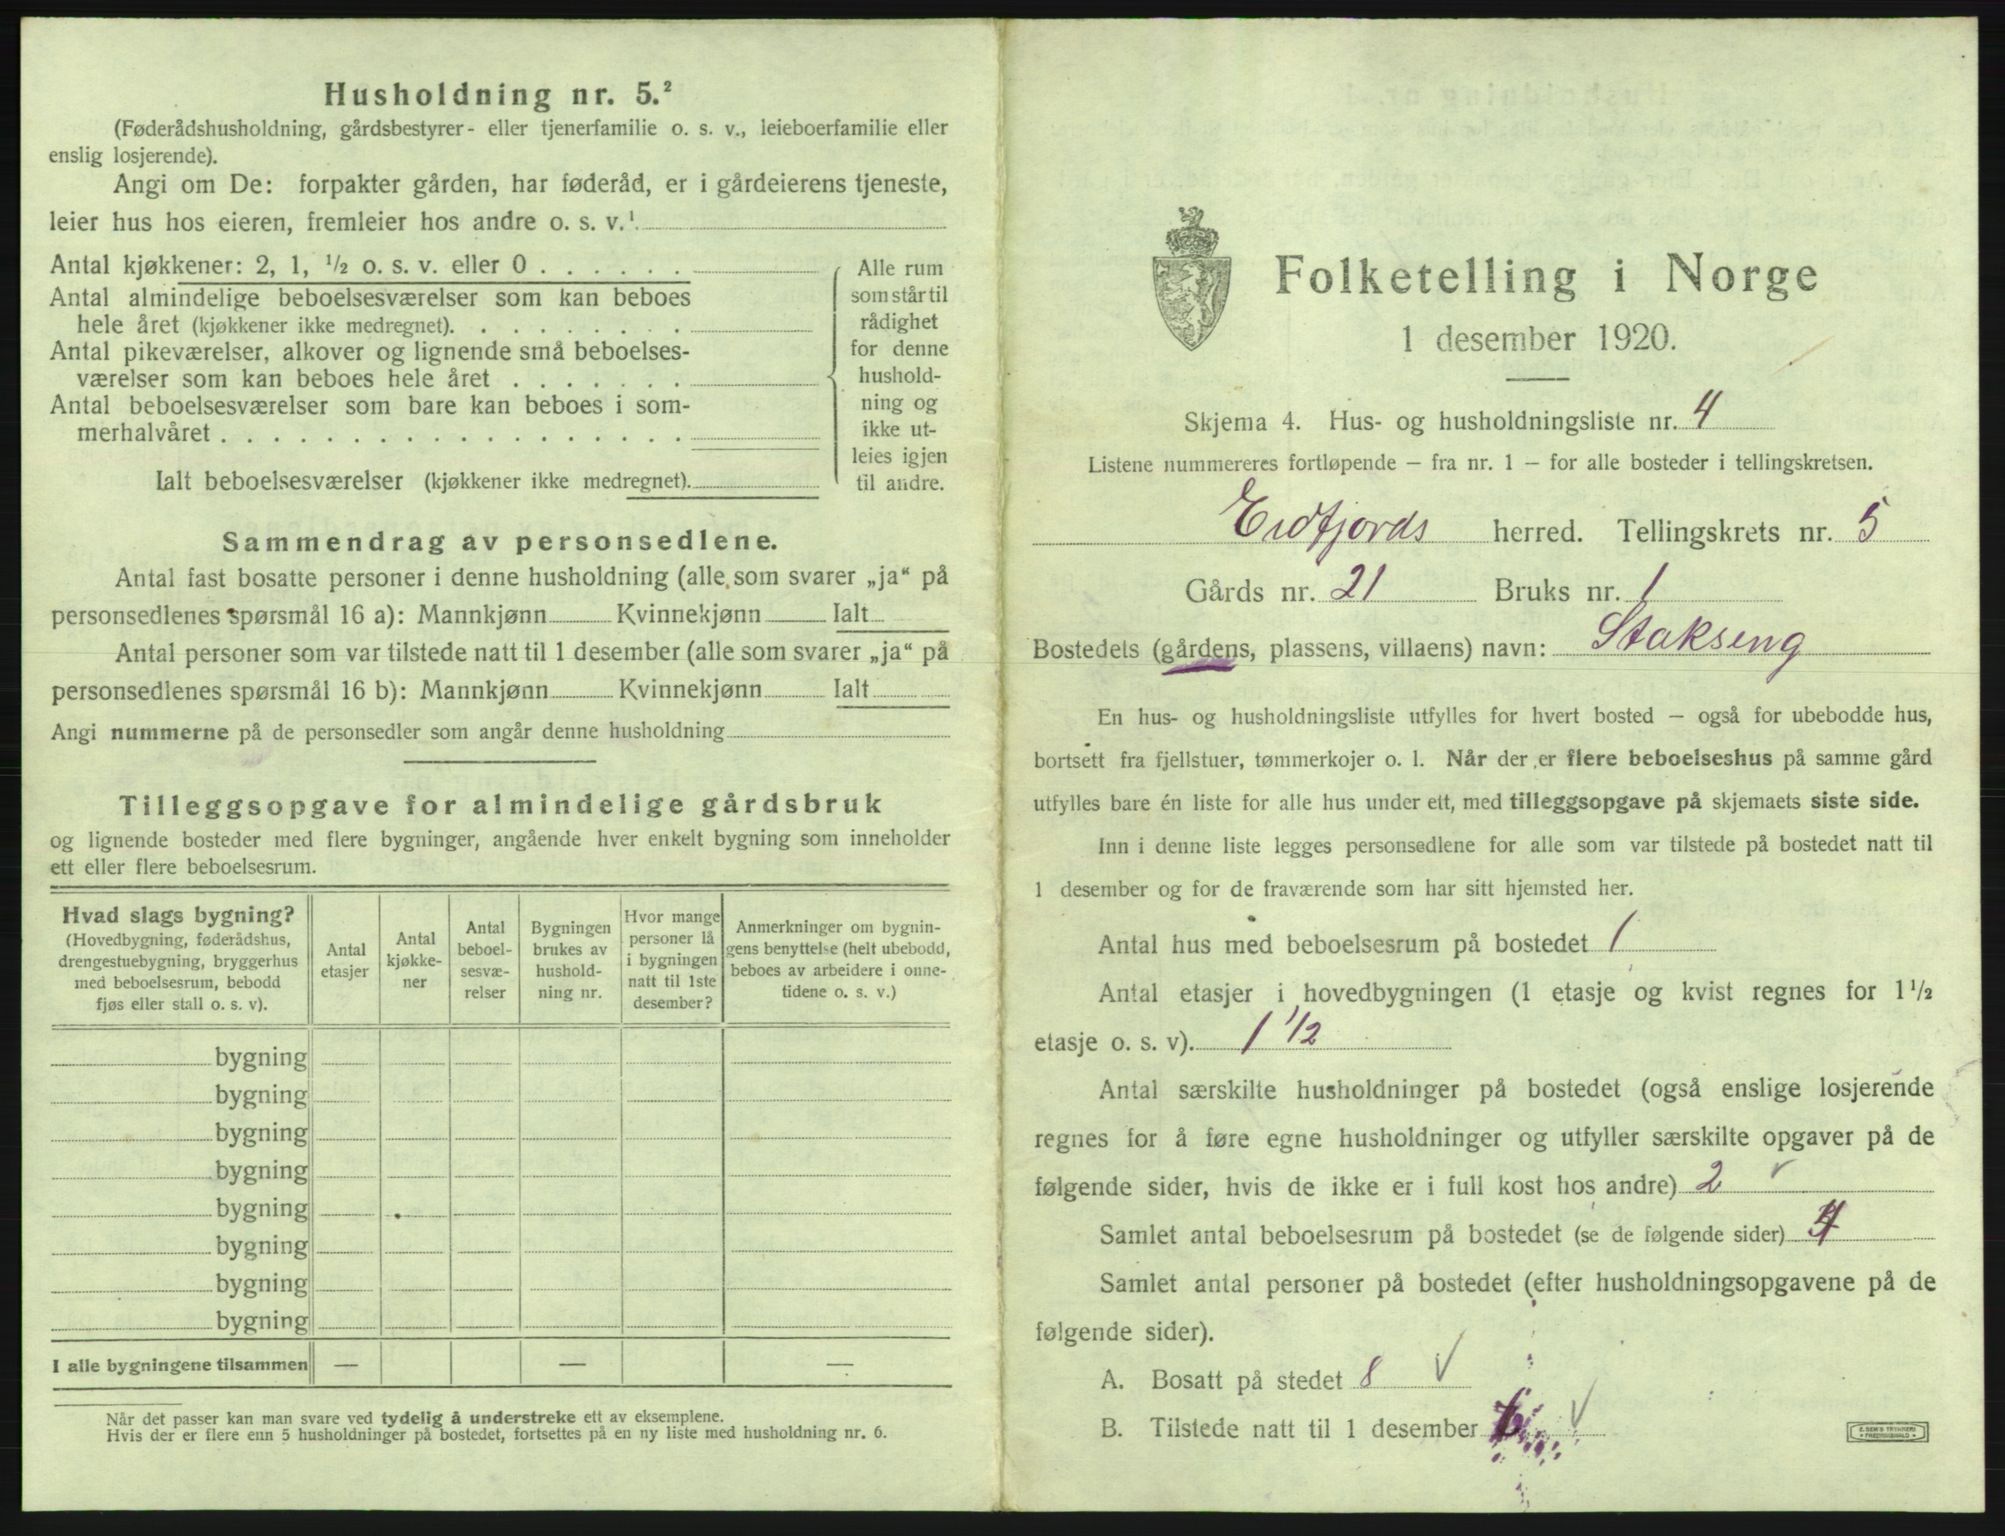 Husholdning nr. 5.²
(Føderådshusholdning, gårdsbestyrer- eller tjenerfamilie o. s. v., leieboerfamilie eller
enslig losjerende).
Angi om De: forpakter gården, har føderåd, er i gårdeierens tjeneste,
leier hus hos eieren, fremleier hos andre o. s. v.¹
Antal kjøkkener: 2, 1, ½ o. s. v. eller 0 . . . . . .
Antal almindelige beboelsesværelser som kan beboes
hele året (kjøkkener ikke medregnet). . . . . . . . .
Antal pikeværelser, alkover og lignende små beboelses-
værelser som kan beboes hele året . . . . . . .
Antal beboelsesværelser som bare kan beboes i som-
merhalvåret . . . . . . . . . . . . . . . . . .
Ialt beboelsesværelser (kjøkkener ikke medregnet).
Alle rum
som står til
rådighet
for denne
hushold-
ning og
ikke ut-
leies igjen
til andre.
Sammendrag av personsedlene.
Antal fast bosatte personer i denne husholdning (alle som svarer „ja“ på
personsedlenes spørsmål 16 a): Mannkjønn Kvinnekjønn Ialt
Antal personer som var tilstede natt til 1 desember (alle som svarer „ja“ på
personsedlenes spørsmål 16 b): Mannkjønn Kvinnekjønn Ialt
Angi nummerne på de personsedler som angår denne husholdning
Tilleggsopgave for almindelige gårdsbruk
og lignende bosteder med flere bygninger, angående hver enkelt bygning som inneholder
ett eller flere beboelsesrum.
Hvad slags bygning?
(Hovedbygning, føderådshus,
drengestuebygning, bryggerhus
med beboelsesrum, bebodd
fjøs eller stall o. s. v).
Antal
etasjer
Antal
kjøkke-
ner
Antal
beboel-
sesvæ-
relser
Bygningen
brukes av
hushold-
ning nr.
Hvor mange
personer lå
i bygningen
natt til 1ste
desember?
Anmerkninger om bygnin-
gens benyttelse (helt ubebodd,
beboes av arbeidere i onne-
tidene o. s. v.)
bygning
bygning
bygning
bygning
bygning
bygning
bygning
bygning
I alle bygningene tilsammen — — —
Når det passer kan man svare ved tydelig å understreke ett av eksemplene.
Hvis der er flere enn 5 husholdninger på bostedet, fortsettes på en ny liste med husholdning nr. 6.
Folketelling i Norge
1 desember 1920.
Skjema 4. Hus- og husholdningsliste nr. 4
Listene nummereres fortløpende — fra nr. 1 — for alle bosteder i tellingskretsen.
Eidfjords herred. Tellingskrets nr. 5
Gårds nr. 21 Bruks nr. 1
Bostedets (gårdens, plassens, villaens) navn: Stakseng
En hus- og husholdningsliste utfylles for hvert bosted — også for ubebodde hus,
bortsett fra fjellstuer, tømmerkojer o. l. Når der er flere beboelseshus på samme gård
utfylles bare én liste for alle hus under ett, med tilleggsopgave på skjemaets siste side.
Inn i denne liste legges personsedlene for alle som var tilstede på bostedet natt til
1 desember og for de fraværende som har sitt hjemsted her.
Antal hus med beboelsesrum på bostedet 1
Antal etasjer i hovedbygningen (1 etasje og kvist regnes for 1½
etasje o. s. v). 1 1/2
Antal særskilte husholdninger på bostedet (også enslige losjerende
regnes for å føre egne husholdninger og utfyller særskilte opgaver på de
følgende sider, hvis de ikke er i full kost hos andre) 2 √
Samlet antal beboelsesrum på bostedet (se de følgende sider) 4
Samlet antal personer på bostedet (efter husholdningsopgavene på de
følgende sider).
A. Bosatt på stedet 8 √
B. Tilstede natt til 1 desember √